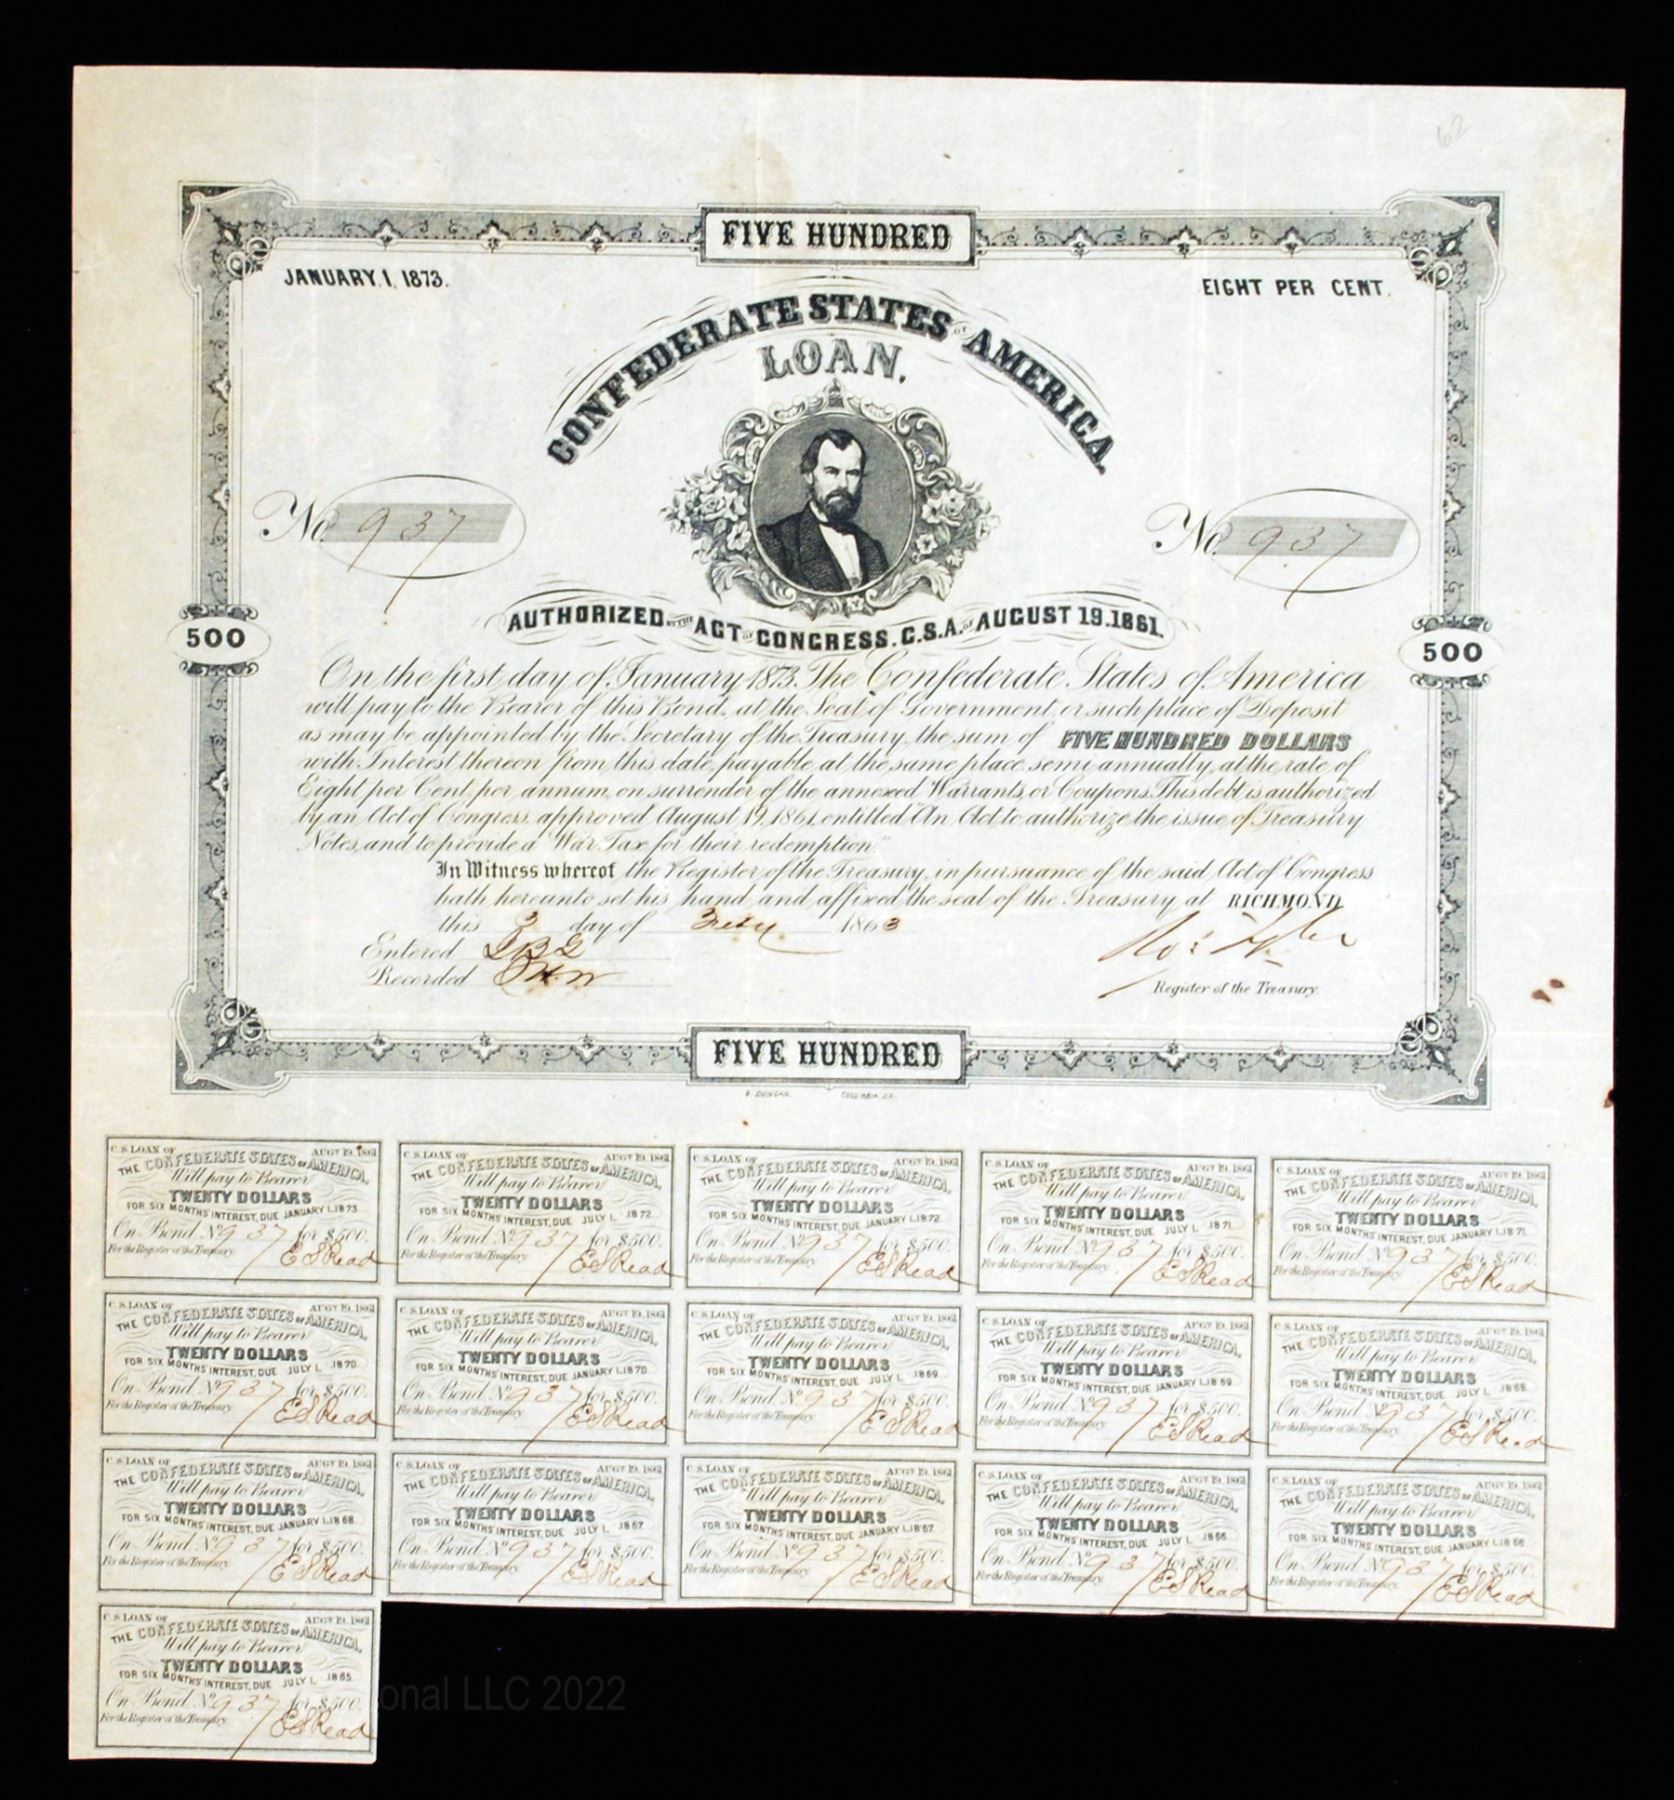 62
FIVE HUNDRED
JANUARY.1, 1873.
EIGHT PER CENT.
CONFEDERATE STATES OF AMERICA.
LOAN.
No. 937
No. 937
AUTHORIZED BY THE ACT OF CONGRESS. C.S.A. OF AUGUST 19.1861.
500
500
On the first day of January 1873. The Confederate States of America
will pay to the Bearer of this Bond, at the Seat of Government, or such place of Deposit
as may be appointed by the Secretary of the Treasury, the sum of FIVE HUNDRED DOLLARS
with Interest thereon from this date, payable at the same place semi annually, at the rate of
Eight per Cent. per annum, on surrender of the annexed Warrants, or Coupons. This debt is authorized
by an Act of Congress, approved August 19, 1861, entitled "An Act to authorize the issue of Treasury
Notes, and to provide a War Tax for their redemption."
In Witness whereof the Register of the Treasury, in pursuance of the said Act of Congress
hath hereunto set his hand and affixed the seal of the Treasury, at RICHMOND
this 3 day of 1863
Entered
Recorded
Register of the Treasury.
FIVE HUNDRED
B. DUNCAN. COLUMBIA, S.C.
C.S. LOAN OF AUGT 19. 1861
THE CONFEDERATE STATES OF AMERICA,
Will pay to Bearer
TWENTY DOLLARS
FOR SIX MONTHS INTEREST, DUE JANUARY 1. 1873.
On Bond No 937 for $500.
For the Register of the Treasury. E S Read
C.S. LOAN OF AUGT 19. 1861
THE CONFEDERATE STATES OF AMERICA,
Will pay to Bearer
TWENTY DOLLARS
FOR SIX MONTHS INTEREST, DUE JULY 1. 1872.
On Bond No 937 for $500.
For the Register of the Treasury. E S Read
C.S. LOAN OF AUGT 19. 1861
THE CONFEDERATE STATES OF AMERICA,
Will pay to Bearer
TWENTY DOLLARS
FOR SIX MONTHS INTEREST, DUE JANUARY 1. 1872.
On Bond No 937 for $500.
For the Register of the Treasury. E S Read
C.S. LOAN OF AUGT 19. 1861
THE CONFEDERATE STATES OF AMERICA,
Will pay to Bearer
TWENTY DOLLARS
FOR SIX MONTHS INTEREST, DUE JULY 1. 1871.
On Bond No 937 for $500.
For the Register of the Treasury. E S Read
C.S. LOAN OF AUGT 19. 1861
THE CONFEDERATE STATES OF AMERICA,
Will pay to Bearer
TWENTY DOLLARS
FOR SIX MONTHS INTEREST, DUE JANUARY 1. 1871.
On Bond No 937 for $500.
For the Register of the Treasury. E S Read
C.S. LOAN OF AUGT 19. 1861
THE CONFEDERATE STATES OF AMERICA,
Will pay to Bearer
TWENTY DOLLARS
FOR SIX MONTHS INTEREST, DUE JULY 1. 1870.
On Bond No 937 for $500.
For the Register of the Treasury. E S Read
C.S. LOAN OF AUGT 19. 1861
THE CONFEDERATE STATES OF AMERICA,
Will pay to Bearer
TWENTY DOLLARS
FOR SIX MONTHS INTEREST, DUE JANUARY 1. 1870.
On Bond No 937 for $500.
For the Register of the Treasury. E S Read
C.S. LOAN OF AUGT 19. 1861
THE CONFEDERATE STATES OF AMERICA,
Will pay to Bearer
TWENTY DOLLARS
FOR SIX MONTHS INTEREST, DUE JULY 1. 1869.
On Bond No 937 for $500.
For the Register of the Treasury. E S Read
C.S. LOAN OF AUGT 19. 1861
THE CONFEDERATE STATES OF AMERICA,
Will pay to Bearer
TWENTY DOLLARS
FOR SIX MONTHS INTEREST, DUE JANUARY 1. 1869.
On Bond No 937 for $500.
For the Register of the Treasury. E S Read
C.S. LOAN OF AUGT 19. 1861
THE CONFEDERATE STATES OF AMERICA,
Will pay to Bearer
TWENTY DOLLARS
FOR SIX MONTHS INTEREST, DUE JULY 1. 1868.
On Bond No 937 for $500.
For the Register of the Treasury. E S Read
C.S. LOAN OF AUGT 19. 1861
THE CONFEDERATE STATES OF AMERICA,
Will pay to Bearer
TWENTY DOLLARS
FOR SIX MONTHS INTEREST, DUE JANUARY 1. 1868.
On Bond No 937 for $500.
For the Register of the Treasury. E S Read
C.S. LOAN OF AUGT 19. 1861
THE CONFEDERATE STATES OF AMERICA,
Will pay to Bearer
TWENTY DOLLARS
FOR SIX MONTHS INTEREST, DUE JULY 1. 1867.
On Bond No 937 for $500.
For the Register of the Treasury. E S Read
C.S. LOAN OF AUGT 19. 1861
THE CONFEDERATE STATES OF AMERICA,
Will pay to Bearer
TWENTY DOLLARS
FOR SIX MONTHS INTEREST, DUE JANUARY 1. 1867.
On Bond No 937 for $500.
For the Register of the Treasury. E S Read
C.S. LOAN OF AUGT 19. 1861
THE CONFEDERATE STATES OF AMERICA,
Will pay to Bearer
TWENTY DOLLARS
FOR SIX MONTHS INTEREST, DUE JULY 1. 1866.
On Bond No 937 for $500.
For the Register of the Treasury. E S Read
C.S. LOAN OF AUGT 19. 1861
THE CONFEDERATE STATES OF AMERICA,
Will pay to Bearer
TWENTY DOLLARS
FOR SIX MONTHS INTEREST, DUE JANUARY 1. 1866.
On Bond No 937 for $500.
For the Register of the Treasury. E S Read
C.S. LOAN OF AUGT 19. 1861
THE CONFEDERATE STATES OF AMERICA,
Will pay to Bearer
TWENTY DOLLARS
FOR SIX MONTHS INTEREST, DUE JULY 1. 1865.
On Bond No 937 for $500.
For the Register of the Treasury. E S Read
onal LLC 2022